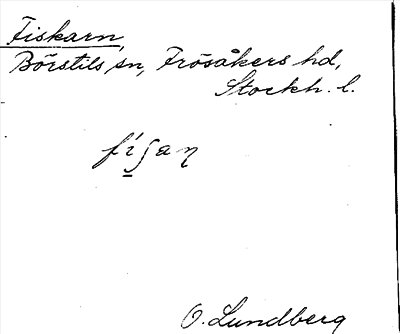 Fiskarn,
Börstils sn, Frösåkers hd,
Stockh. l.
fi̱ʃaƞ
O. Lundberg